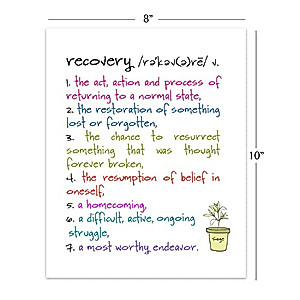 8"
recovery /rəˈkəv(ə)rē/ v.
1. the act, action and process of
returning to a normal state,
2. the restoration of something
lost or forgotten,
3. the chance to resurrect
something that was thought
forever broken,
4. the resumption of belief in
oneself,
5. a homecoming,
6. a difficult, active, ongoing
struggle,
7. a most worthy endeavor.
Sage
10"